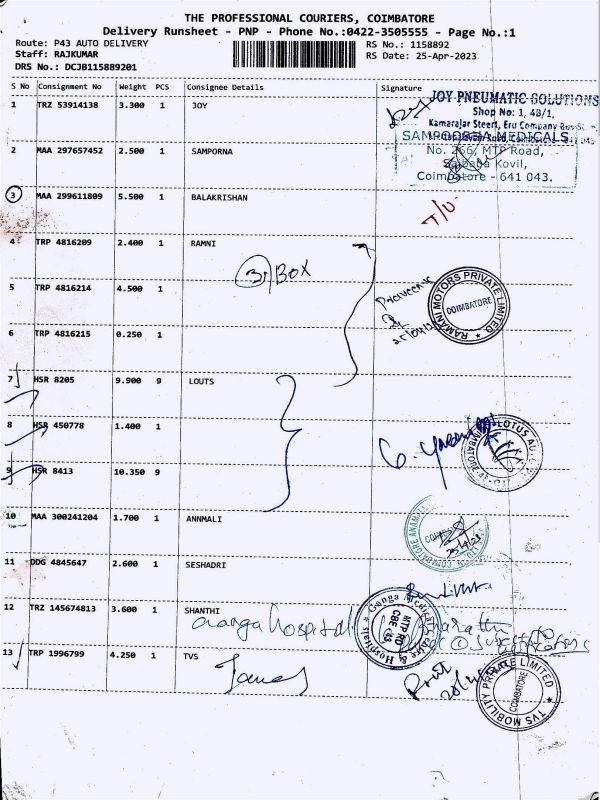 THE PROFESSIONAL COURIERS, COIMBATORE
Delivery Runsheet - PNP - Phone No.:0422-3505555 - Page No.:1
Route: P43 AUTO DELIVERY RS No.: 1158892
Staff: RAJKUMAR RS Date: 25-Apr-2023
DRS No.: DCJB115889201
S No Consignment No Weight PCS Consignee Details Signature
1 TRZ 53914138 3.300 1 JOY
JOY PNEUMATIC SOLUTIONS
Shop No: 1, 4B/1,
Kamarajar Steert, Eru Company Bus
SAMPOORNA MEDICALS
2 MAA 297657452 2.500 1 SAMPORNA
No. 266, MTP Road,
Saibaba Kovil,
Coimbatore - 641 043.
3 MAA 299611809 5.500 1 BALAKRISHAN
4 TRP 4816209 2.400 1 RAMNI
3 BOX
5 TRP 4816214 4.500 1
RAMANI MOTORS PRIVATE LIMITED
COIMBATORE
6 TRP 4816215 0.250 1
7 HSR 8205 9.900 9 LOUTS
8 HSR 450778 1.400 1
LOTUS
9 HSR 8413 10.350 9
10 MAA 300241204 1.700 1 ANNMALI
11 DDG 4845647 2.600 1 SESHADRI
12 TRZ 145674813 3.600 1 SHANTHI
Ganga Hospital
Ganga Medical Centre & Hospital
MTP RD
CBE-43
13 TRP 1996799 4.250 1 TVS
TVS MOBILITY PRIVATE LIMITED
COIMBATORE